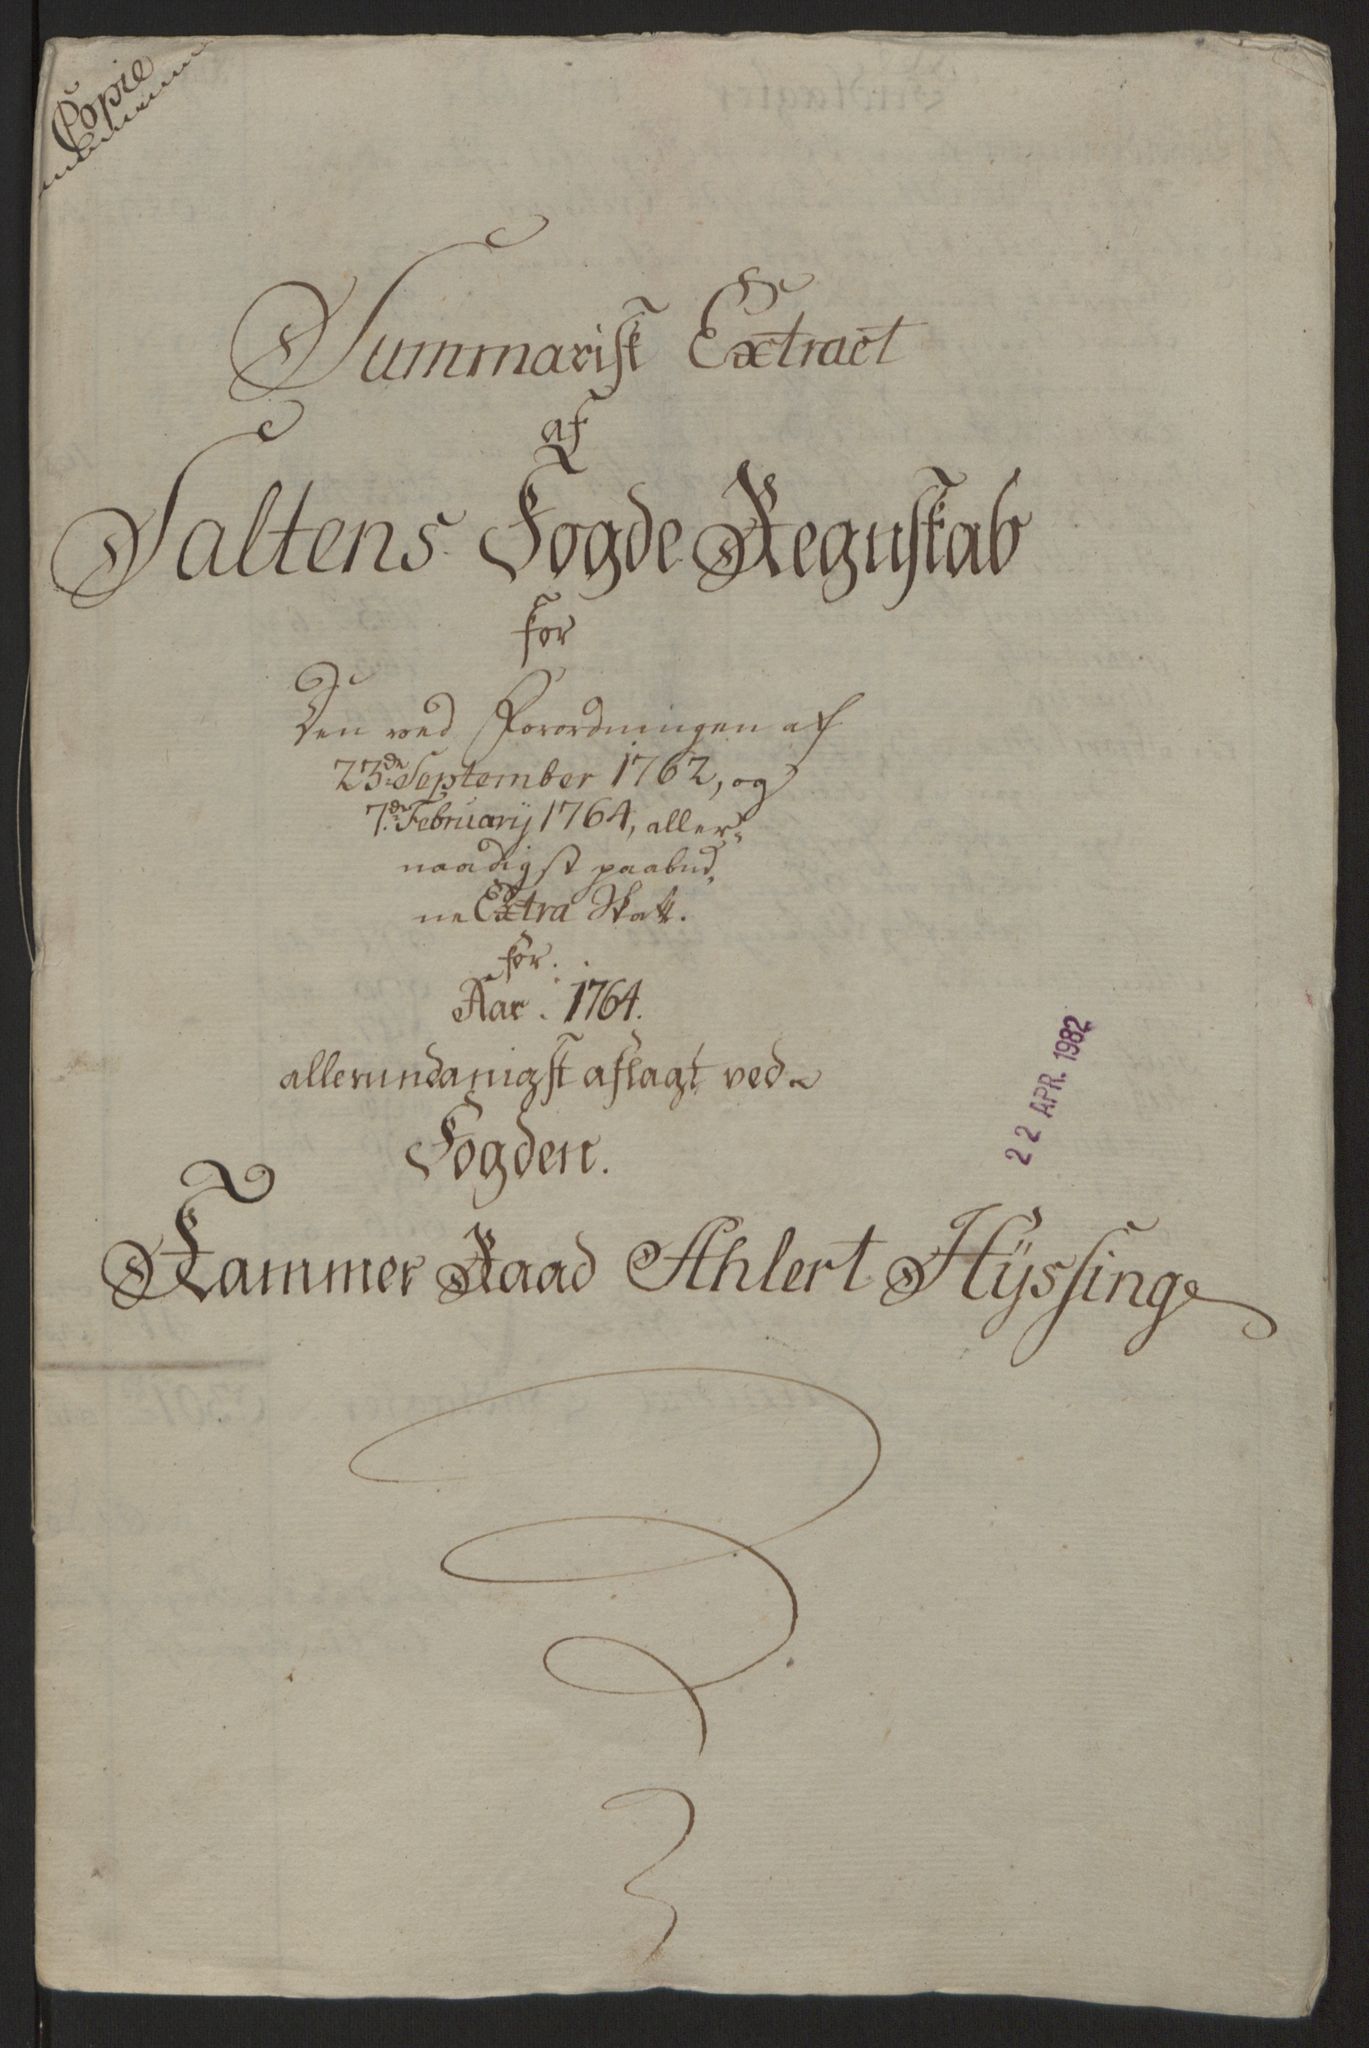 Copie
Summarisk Extract
af
Saltens Fogde Regnskab
for
Den ved Forordningen af
23de September 1762, og
7de Februarij 1764, aller=
naadigst paabud,
ne Extra Skatt.
for.
Aar. 1764.
allerundanigst aflagt ved
Fogden.
Kammer Raad Ahlert Hÿssing
22 APR. 1982